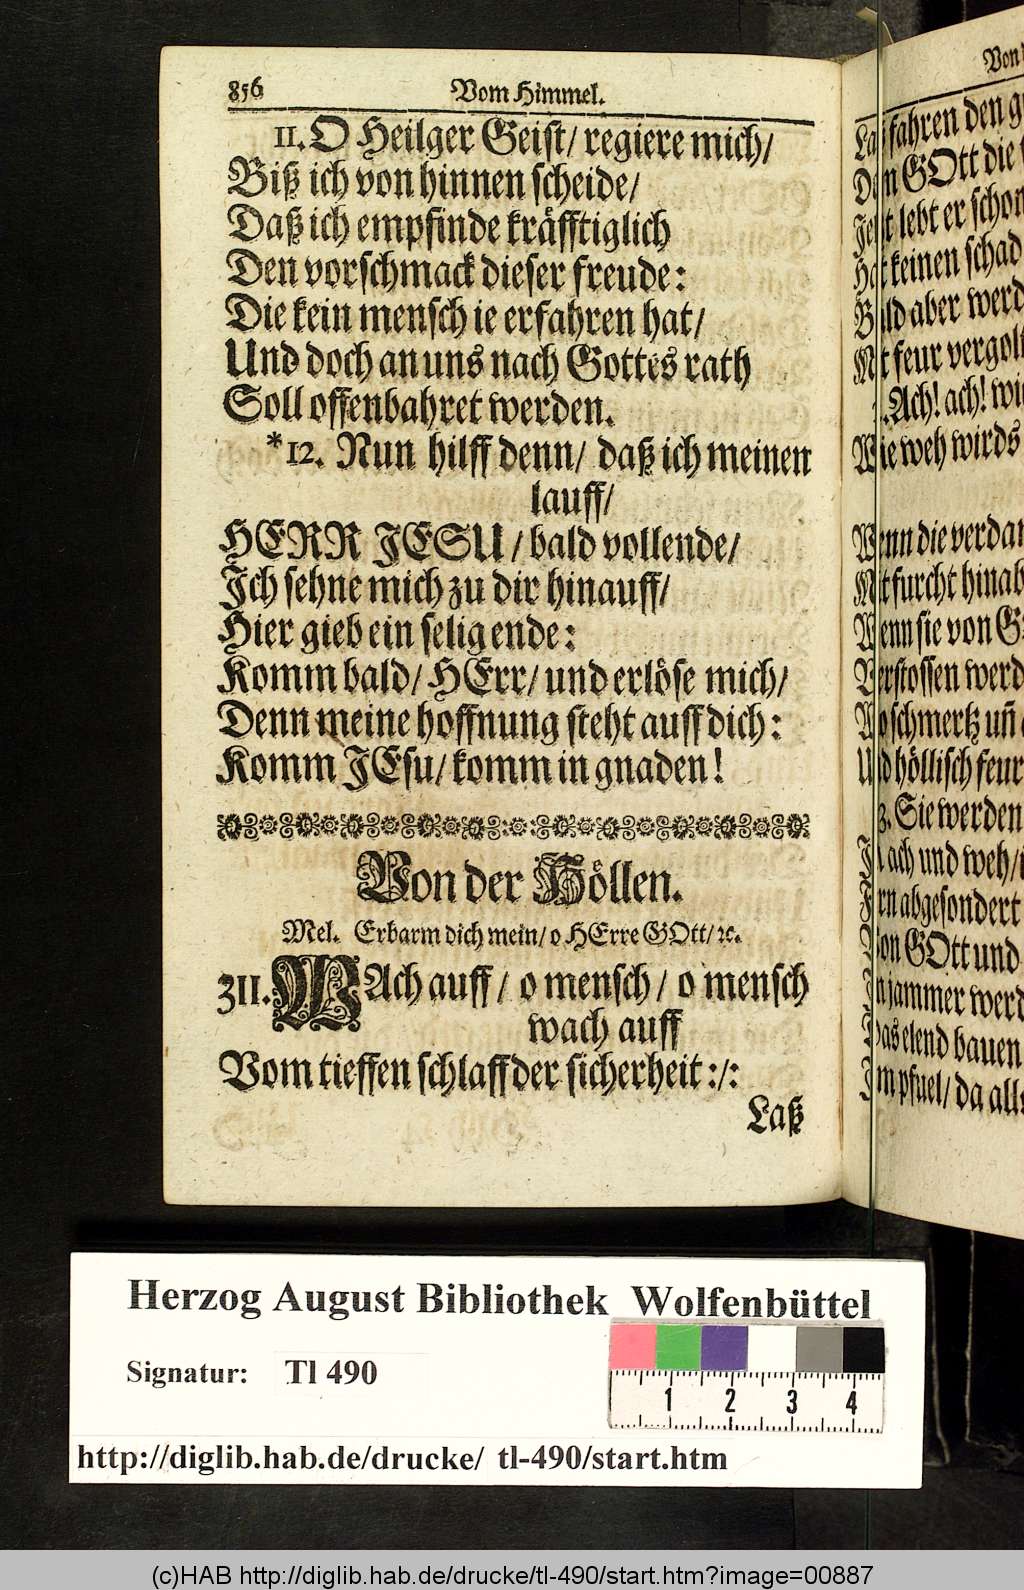 856 Vom Himmel.
11. O Heilger Geist/ regiere mich/
Biß ich von hinnen scheide/
Daß ich empfinde kräfftiglich
Den vorschmack dieser freude:
Die kein mensch ie erfahren hat/
Und doch an uns nach Gottes rath
Soll offenbahret werden.
*12. Nun hilff denn/ daß ich meinen
lauff/
HERR JESU/ bald vollende/
Ich sehne mich zu dir hinauff/
Hier gieb ein selig ende:
Komm bald/ HErr/ und erlöse mich/
Denn meine hoffnung steht auff dich:
Komm JEsu/ komm in gnaden!
Von der Höllen.
Mel. Erbarm dich mein/ o HErre GOtt/ ꝛc.
311. WAch auff/ o mensch/ o mensch
wach auff
Vom tieffen schlaff der sicherheit :/:
Laß
Von
fahren den
GOtt die
lebt er schon
keinen schad
aber werd
feur vergol
Ach! ach! wi
weh wirds
die verdam
furcht hinab
sie von
werd
schmertz uñ
höllisch feur
Sie werden
ach und weh/
abgesondert
GOtt und
jammer werd
elend bauen
pfuel/ da all
Herzog August Bibliothek Wolfenbüttel
Signatur: Tl 490
1 2 3 4
http://diglib.hab.de/drucke/ tl-490/start.htm
(c)HAB http://diglib.hab.de/drucke/tl-490/start.htm?image=00887